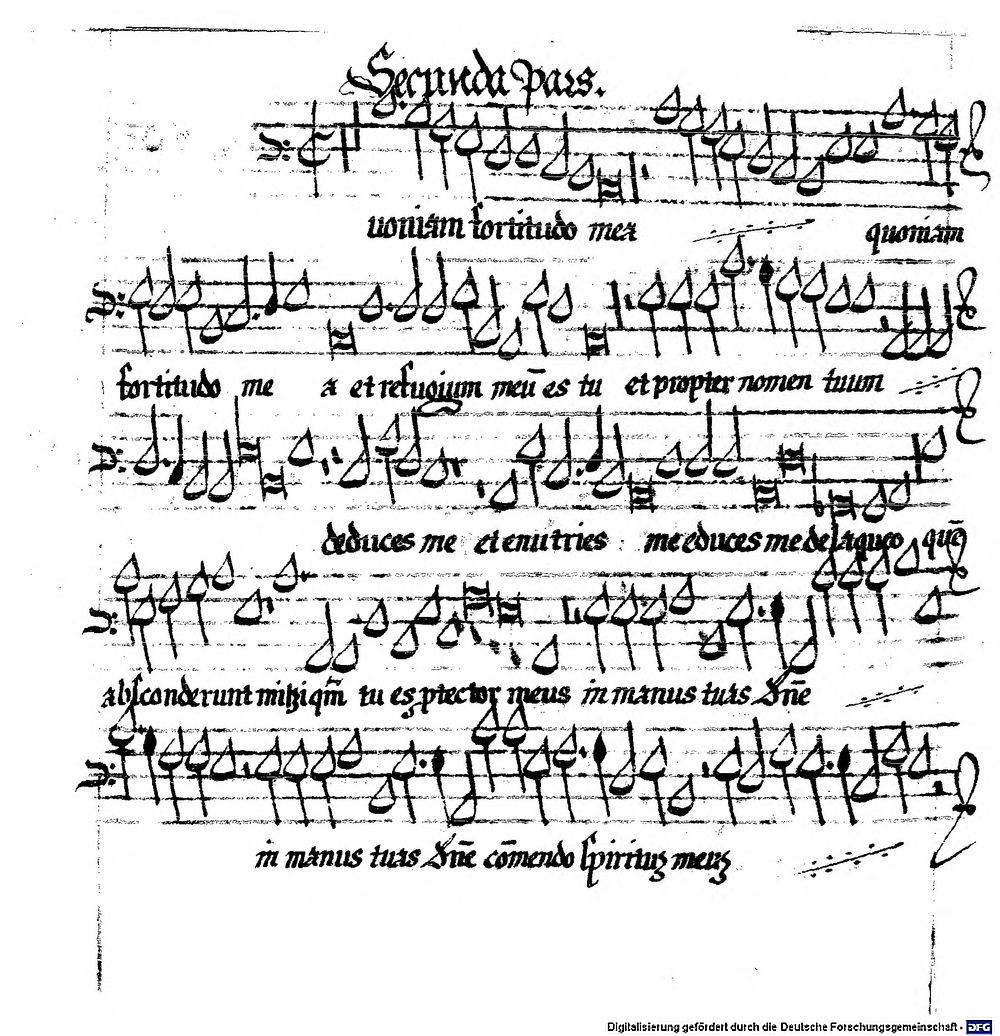 Secunda Pars.
uoniam fortitudo mea quoniam
fortitudo me a et refugium meū es tu et propter nomen tuum
deduces me et enutries me educes me de laqueo quē
absconderunt mihi qm̄ tu es ꝓtector meus in manus tuas dn̄e
in manus tuas dn̄e cōmendo spirituꝫ meuꝫ
Digitalisierung gefördert durch die Deutsche Forschungsgemeinschaft - DFG